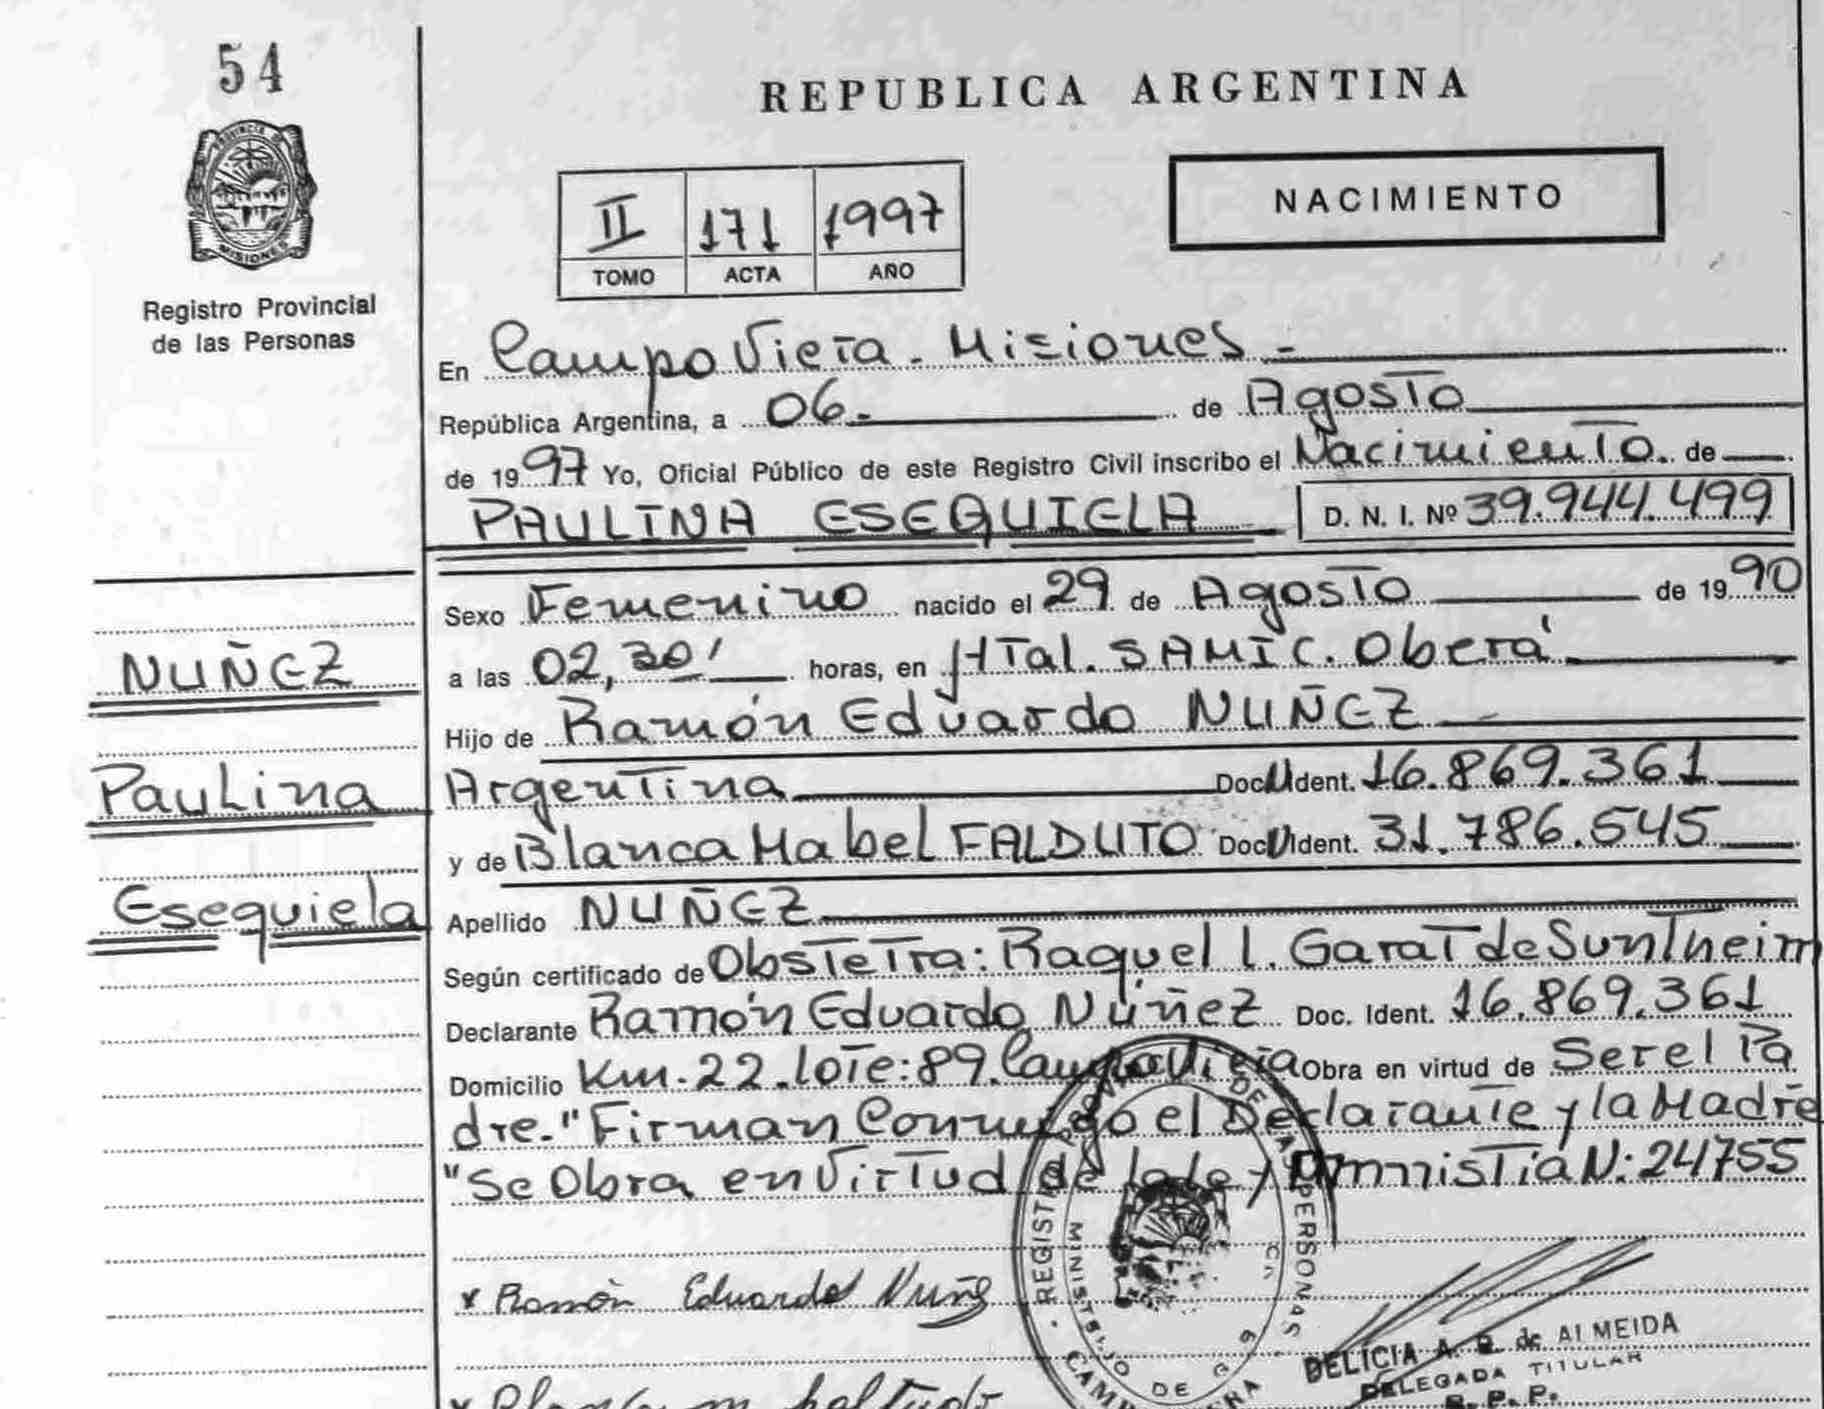 54
REPUBLICA ARGENTINA
PROVINCIA DE
MISIONES
Registro Provincial
de las Personas
II 171 1997
TOMO ACTA AÑO
NACIMIENTO
En Campo Viera - Misiones -
República Argentina, a 06 - de Agosto
de 1997 Yo, Oficial Público de este Registro Civil inscribo el Nacimiento. de
PAULINA ESEQUIELA D. N. I. Nº 39.944.499
Sexo Femenino nacido el 29 de Agosto de 1990
a las 02,30' horas, en HTal. SAMIC. Oberá
NUÑEZ
Hijo de Ramón Eduardo NUÑEZ
Paulina
Argentina Doc. U Ident. 16.869.361
y de Blanca Mabel FALDUTO Doc. U Ident. 31.786.545
Esequiela
Apellido NUÑEZ
Según certificado de Obstetra: Raquel l. Garat de Suntheim
Declarante Ramón Eduardo Núñez Doc. Ident. 16.869.361
Domicilio Km. 22. lote: 89. Campo Viera Obra en virtud de Ser el Pa
dre. "Firman Conmigo el Declarante y la Madre
"Se Obra en Virtud de la Ley Amnistia N: 24755
x Ramón Eduardo Nuñez
REGISTRO PROVINCIAL DE LAS PERSONAS
MINISTERIO DE
DELICIA A. B. de ALMEIDA
DELEGADA TITULAR
R. P. P.